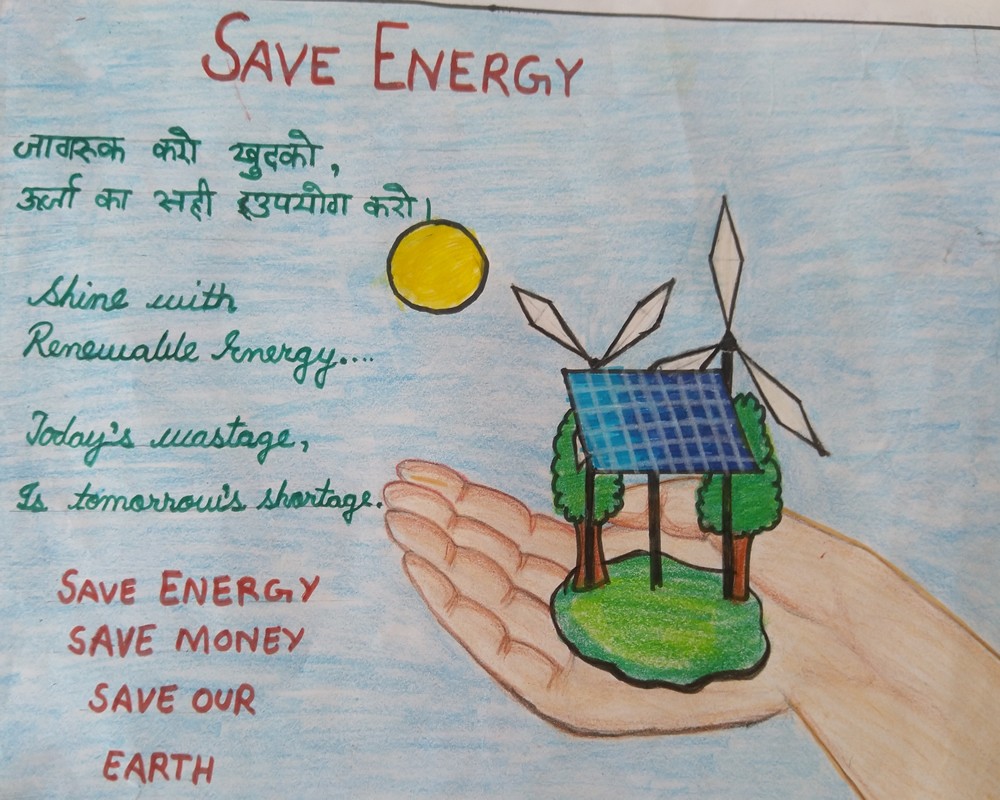 SAVE ENERGY
जागरूक करो खुदको,
ऊर्जा का सही उपयोग करो।
Shine with
Renewable Energy....
Today's wastage,
Is tomorrow's shortage.
SAVE ENERGY
SAVE MONEY
SAVE OUR
EARTH